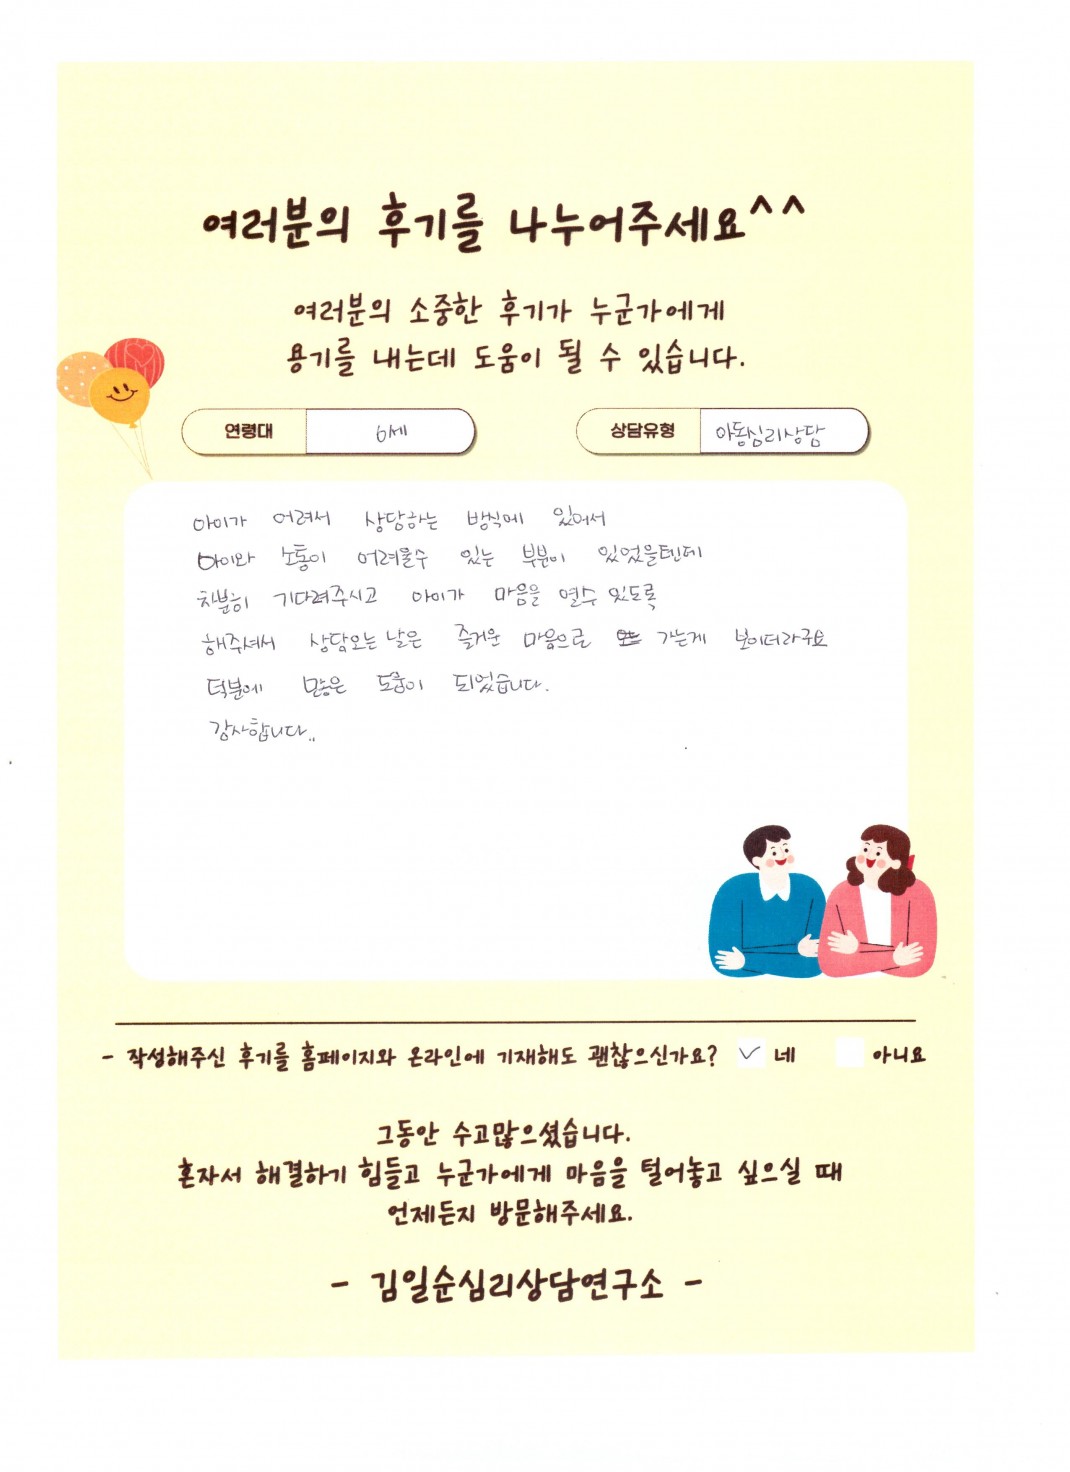 여러분의 후기를 나누어주세요^^
여러분의 소중한 후기가 누군가에게
용기를 내는데 도움이 될 수 있습니다.
연령대 6세 상담유형 아동심리상담
아이가 어려서 상담하는 방식에 있어서
아이와 소통이 어려울수 있는 부분이 있었을텐데
차분히 기다려주시고 아이가 마음을 열수 있도록
해주셔서 상담오는 날은 즐거운 마음으로 가는게 보이더라구요
덕분에 많은 도움이 되었습니다.
감사합니다..
- 작성해주신 후기를 홈페이지와 온라인에 기재해도 괜찮으신가요? ✓ 네 아니요
그동안 수고많으셨습니다.
혼자서 해결하기 힘들고 누군가에게 마음을 털어놓고 싶으실 때
언제든지 방문해주세요.
- 김일순심리상담연구소 -